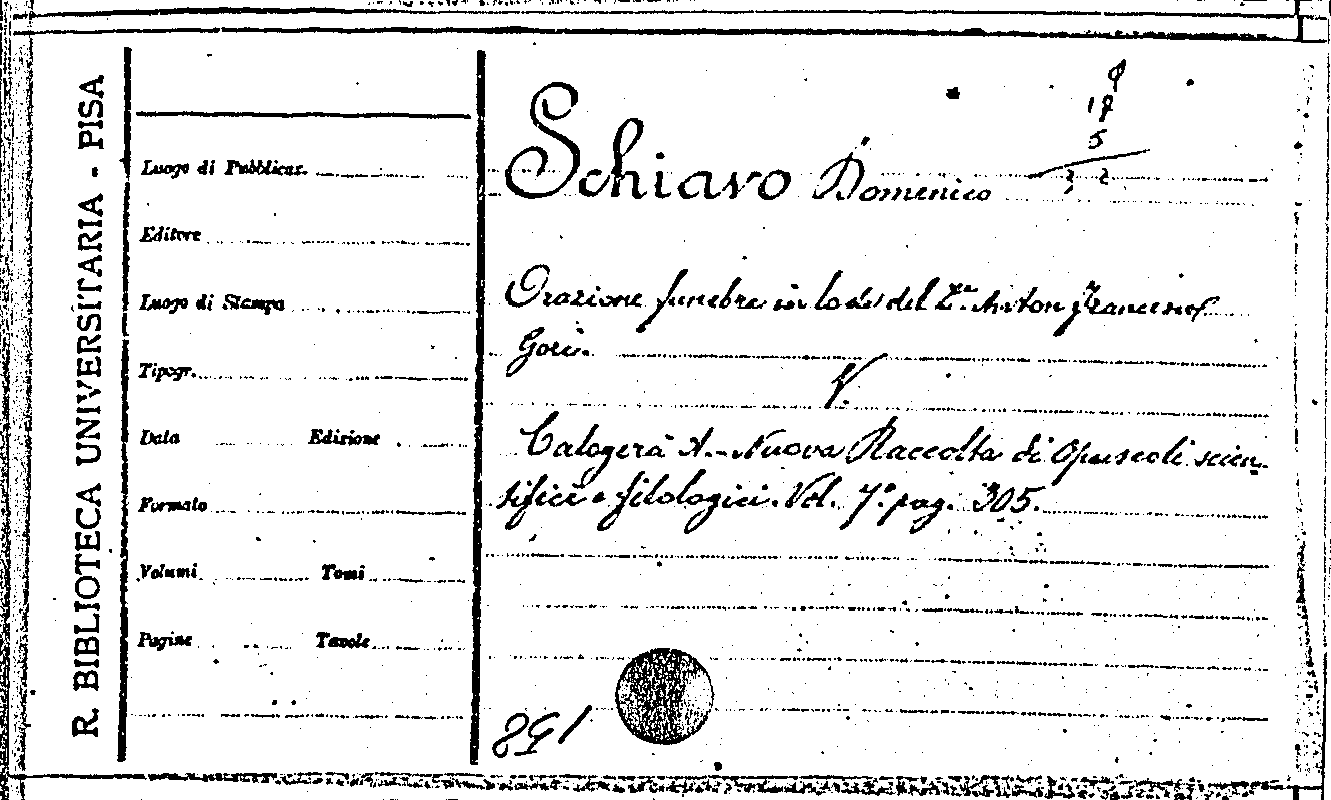 R. BIBLIOTECA UNIVERSITARIA - PISA
Luogo di Pubblicaz.
Editore
Luogo di Stampa
Tipogr.
Data Edizione
Formato
Volumi Tomi
Pagine Tavole
Q
17
5
2 2
Schiavo Domenico
Orazione funebre in lode del Anton Francesco
Gori.
V.
Calogerà A. - Nuova Raccolta di Opuscoli scien-
tifici e filologici. Vol. 7º pag. 305.
158